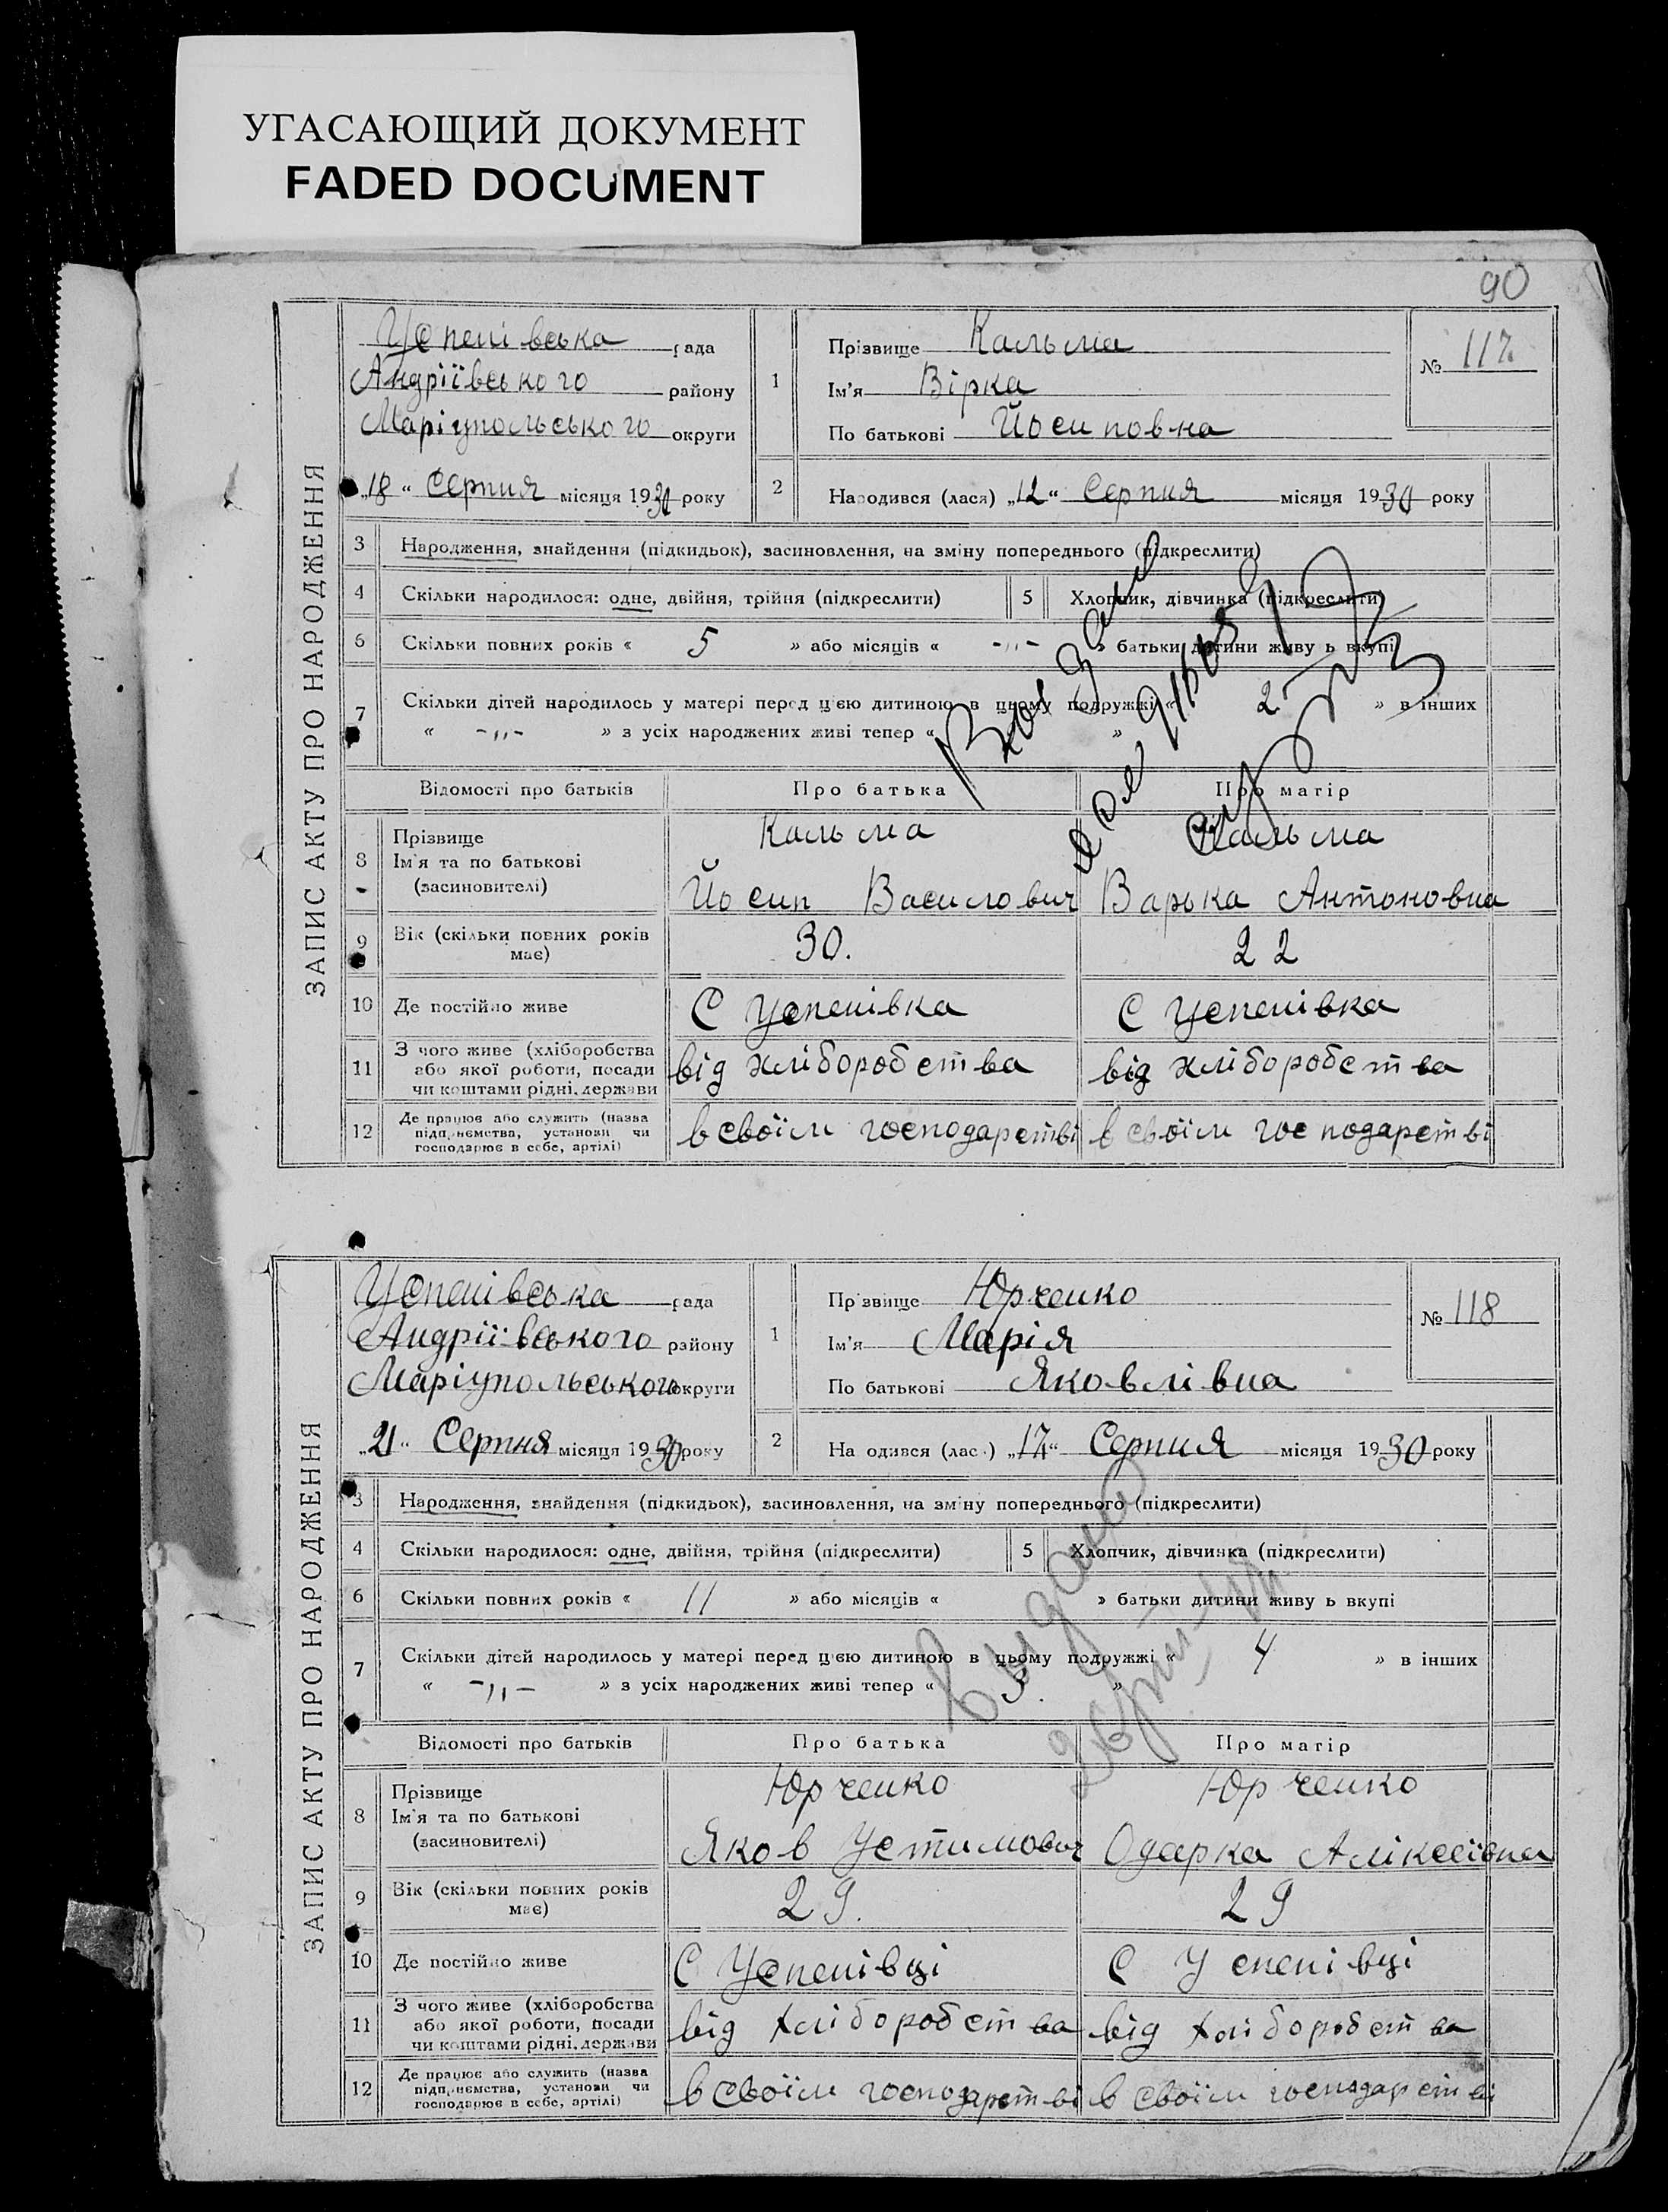 УГАСАЮЩИЙ ДОКУМЕНТ
FADED DOCUMENT
90
ЗАПИС АКТУ ПРО НАРОДЖЕННЯ
Успенівська рада
Андріївського району
Маріупольського округи
„18“ Серпня місяця 1930 року
1
Прізвище Кальма
Ім'я Вірка
По батькові Йосиповна
№ 117
2
Народився (лася) „12“ Серпня місяця 1930 року
3 Народження, знайдення (підкидьок), засиновлення, на зміну попереднього (підкреслити)
4 Скільки народилося: одне, двійня, трійня (підкреслити) 5 Хлопчик, дівчинка (підкреслити)
6 Скільки повних років « 5 » або місяців « -„- » батьки дитини живу ь вкупі
7 Скільки дітей народилось у матері перед цією дитиною в цьому подружжі « 2 » в інших
« -„- » з усіх народжених живі тепер « »
Відомості про батьків Про батька Про матір
8 Прізвище Кальма Кальма
Ім'я та по батькові
(засиновителі) Йосип Василович Варька Антоновна
9 Вік (скільки повних років має) 30. 22
10 Де постійно живе С Успенівка С Успенівка
11 З чого живе (хліборобства
або якої роботи, посади
чи коштами рідні, держави від хліборобства від хліборобства
12 Де працює або служить (назва
підприємства, установи чи
господарює в себе, артілі) в своїм господарстві в своїм господарстві
ЗАПИС АКТУ ПРО НАРОДЖЕННЯ
Успенівська рада
Андріївського району
Маріупольського округи
„21“ Серпня місяця 1930 року
1
Прізвище Юрченко
Ім'я Марія
По батькові Яковлівна
№ 118
2
На одився (лас ) „17“ Серпня місяця 1930 року
3 Народження, знайдення (підкидьок), засиновлення, на зміну попереднього (підкреслити)
4 Скільки народилося: одне, двійня, трійня (підкреслити) 5 Хлопчик, дівчинка (підкреслити)
6 Скільки повних років « 11 » або місяців « » батьки дитини живу ь вкупі
7 Скільки дітей народилось у матері перед цією дитиною в цьому подружжі « 4 » в інших
« -„- » з усіх народжених живі тепер « 3. »
Видано
Відомості про батьків Про батька Про матір
8 Прізвище Юрченко Юрченко
Ім'я та по батькові
(засиновителі) Яков Устимович Одарка Аліксеївна
9 Вік (скільки повних років має) 29. 29
10 Де постійно живе С Успенівці С Успенівці
11 З чого живе (хліборобства
або якої роботи, посади
чи коштами рідні, держави від хліборобства від хліборобства
12 Де працює або служить (назва
підприємства, установи чи
господарює в себе, артілі) в своїм господарстві в своїм господарстві